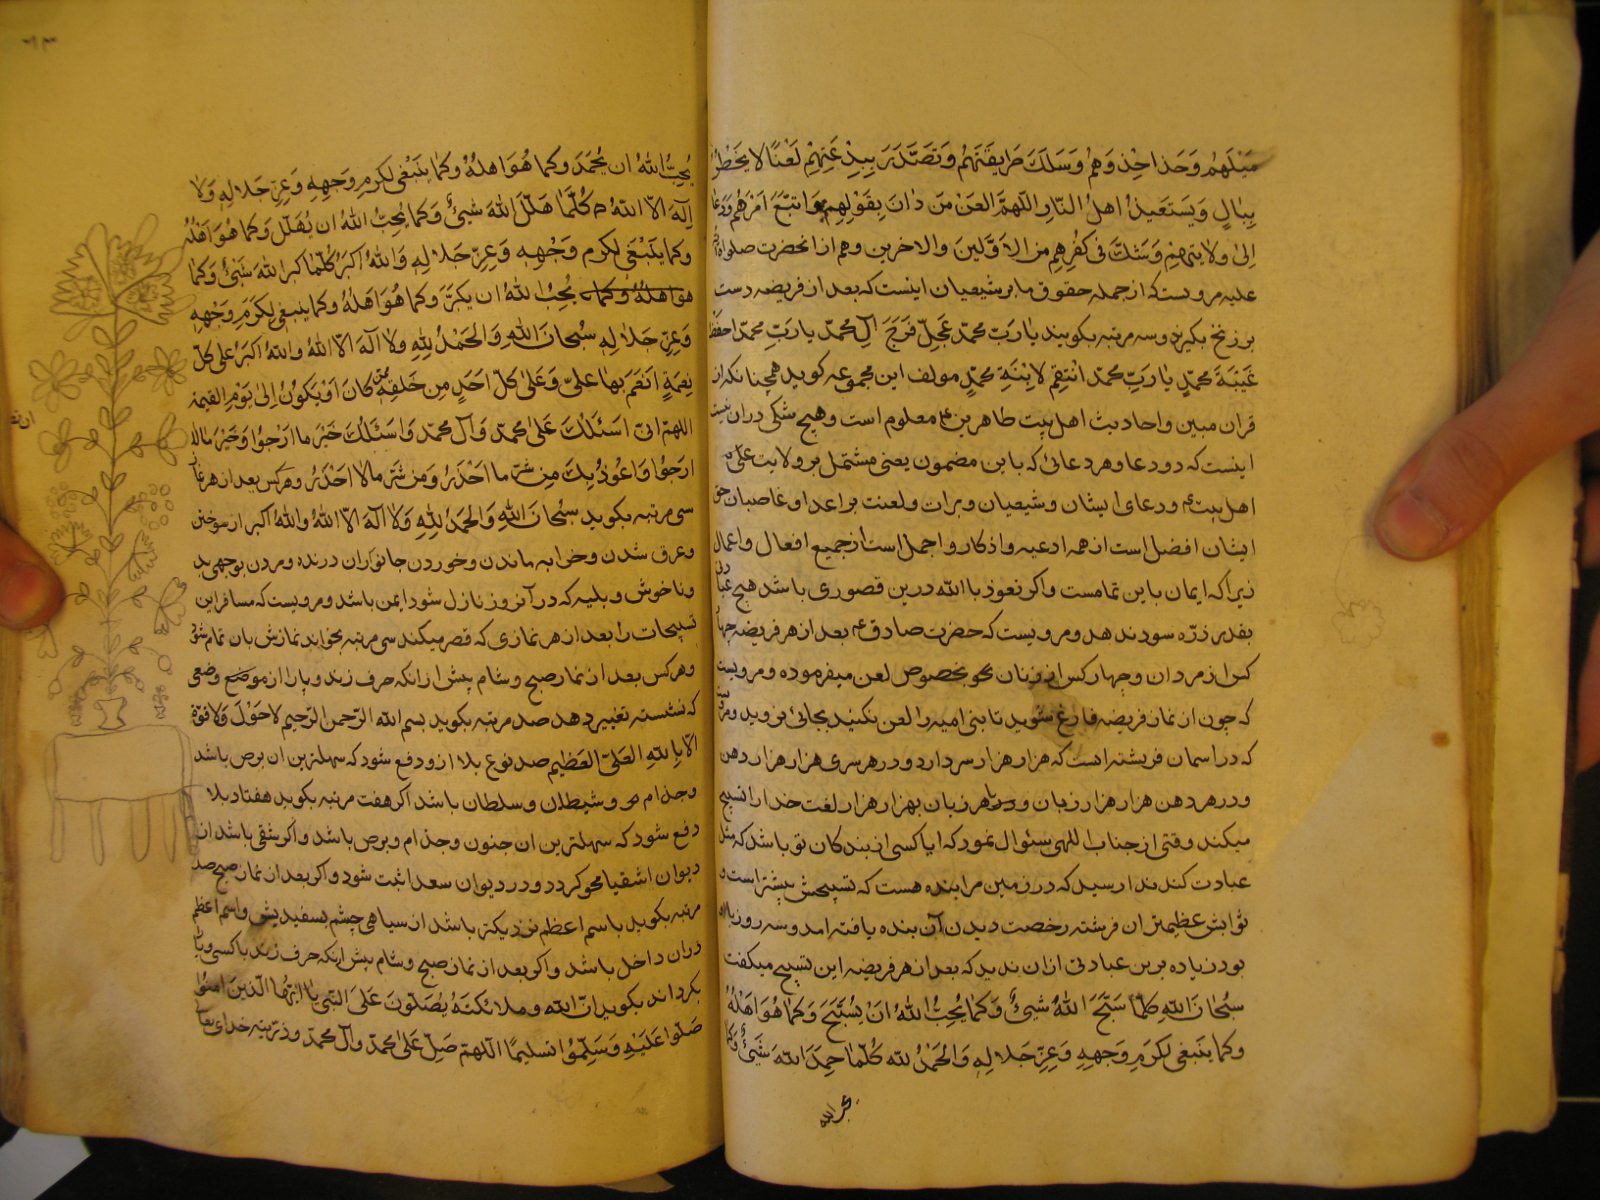 مَیلَهُم وَحَذا حِذوَهُم وَسَلَكَ طَریقَتَهُم وَتَصَدَّرَ بِبِدعَتِهِم لَعنًا لا یَخطُرُ
بِبالٍ وَیَستَعیذُ اهلُ النّارِ اللّهمَّ العَن مَن دانَ بِقَولِهِم وَاتَّبَعَ اَمرَهُم وَدَعا
اِلیٰ وِلایَتِهِم وَشَكَّ فی کُفرِهِم مِنَ الاَوَّلینَ والاخرین وهم از انحضرت صلواة الله
علیه مرویست که از جمله حقوق ما بر شیعیان اینست که بعد از فریضه دست
بر زنخ بگیرند و سه مرتبه بگویند یا رَبِّ محمّد عَجِّل فَرَجَ آلِ محمّد یا رَبِّ محمّد احفظ
غَیبَةَ محمّدٍ یا رَبِّ محمّد انتَقِم لابنَةِ محمّدٍ مولف این مجموعه گوید همچنانکه از
قران مبین و احادیث اهل بیت طاهرین ع معلوم است و هیچ شکی در ان نیست
اینست که درود عا و هر دعائی که با این مضمون یعنی مشتمل بر ولایت علی و
اهل بیت ع و دعای ایشان و شیعیان و بران و لعنت بر اعدا و غاصبان حق
ایشان افضل است از همه ادعیه و اذکار و اجمل است از جمیع افعال و اعمال
زیرا که ایمان باین تمامست و اکر نعوذ باالله درین قصوری باشد هیچ عبادتی
بقدر ذرّه سود ندهد و مرویست که حضرت صادق ع بعد از هر فریضه چهار
کس از مردان و چهار کس از زنان بخصوص لعن میفرموده و مرویست
که چون از نماز فریضه فارغ شوید تا بنی امیه را لعن نکنید بجائی نروید و مرویست
که در اسمان فریشته است که هزار هزار سر دارد و در هر سری هزار هزار دهن
و در هر دهن هزار هزار زبان و هر زبان بهزار هزار لغت خدا را تسبیح
میکند وقتی از جناب اللهی سئوال نمود که ایا کسی از بندکان تو باشد که مثل
عبادت کند ندا رسید که در زمین مرا بنده هست که تسبیحش بیشتر است و
ثوابش عظیمتر ان فرشته رخصت دیدن آن بنده یافته امد و سه روز با او
بود زیاده برین عبادتی از ان ندید که بعد از هر فریضه این تسبیح میکفت
سُبحانَ اللهِ کُلَّما سَبَّحَ اللهَ شَیئٌ وَکَما یُحِبُّ اللهُ اَن یُسَبَّحَ وَکَما هُوَ اَهلُهُ
وکما ینبغی لکرم وَجهِهِ وَعِزِّ جَلالِهِ وَالحَمدُ لله کُلَّما حَمِدَ اللهَ شَیئٌ وکما
یُحِبُّ اللهُ ان یُحمَدَ وکما هُوَ اهلهُ وکما یَنبَغی لکرم وَجهِهِ وَعِزِّ جَلالِهِ وَلا
اِلٰهَ الاّ اللهُ کُلَّما هَلَّلَ اللهَ شَیئٌ وکَما یُحِبُّ اللهُ ان یُهَلَّلَ وَکما هُوَ اَهلُهُ
وکما یَنبَغی لکرم وَجهِهِ وَعِزِّ جَلالِهِ وَاللهُ اکبَر کُلَّما کبَّر اللهَ شَیئٌ وَکما
هو اهلهُ وکما یُحِبُّ اللهُ ان یکبَّرَ وَکما هُوَ اَهلهُ وکما ینبغی لِکَرَمِ وَجهِهِ
وَعِزِّ جَلالِهِ سُبحانَ اللهِ وَالحَمدُ لِلّهِ وَلا اِلٰهَ الاّ اللهُ واللهُ اکبَر عَلی کلِّ
نِعمَةٍ اَنعَمَ بِها عَلَیَّ وَعَلیٰ کلِّ اَحَدٍ مِن خَلقِهِ مِمَّن کانَ اَو یَکونُ اِلیٰ یَومِ القیمة
اللهم انّی اسئلك عَلیٰ محمّد وَآلِ محمّد وَاَسئَلُكَ خَیرَ ما اَرجُوا وَخَیرَ ما لا
اَرجُوا وَاَعُوذُ بِكَ مِن شرِّ ما اَحذَرُ وَمِن شَرِّ ما لا اَحذَرُ و هر کس بعد از هر نماز
سی مرتبه بکوید سُبحانَ اللهِ وَالحَمدُ لِلّهِ وَلا اِلٰهَ الاّ اللهُ واللهُ اکبر از سوختن
و غرق شدن و خرابه ماندن و خوردن جانوران درنده و مردن بوجهی بد
و ناخوش و بلیه که در آنروز نازل شود ایمن باشد و مرویست که مسافر این
تسبیحات را بعد از هر نمازی که قصر میکند سی مرتبه بخواند نمازش بان تمام شود
و هر کس بعد از نماز صبح و شام پیش از انکه حرف زند و پا را از موضع وضعی
که نشسته تغییر دهد صد مرتبه بکوید بسم الله الرّحمن الرّحیم لا حَولَ وَلا قوّة
الاّ بِاللهِ العَلیِّ العَظیم صد نوع بلا از و دفع شود که سهلترین ان برص باشد
و جذام و شیطان و سلطان باشد اکر هفت مرتبه بکوید هفتاد بلا
دفع شود که سهلترین ان جنون و جذام و برص باشد و اکر شقی باشد از
دیوان اشقیا محو کردد و در دیوان سعدا ثبت شود و اکر بعد از نماز صبح صد
مرتبه بکوید باسم اعظم نزدیکتر باشد از سیاهی چشم بسفیدیش و اسم اعظم
دران داخل باشد و اکر بعد از نماز صبح و شام پیش ازینکه حرف زند با کسی و پا
بکرداند بکوید انّ الله وملائکته یُصَلّونَ عَلَی النّبی یا ایّها الّذین امنوا
صَلّوا عَلَیهِ وَسَلِّمُوا تسلیمًا اللّهمّ صَلِّ عَلیٰ محمّد وآلِ محمّد وذرّیّته خدای تعالی